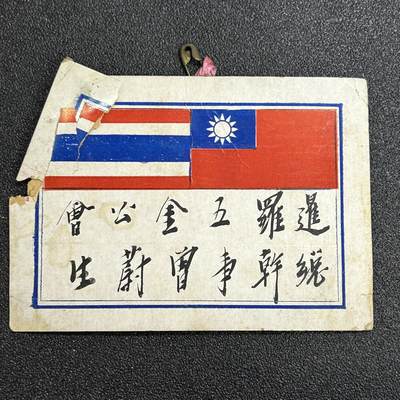 暹羅五金公會
總幹事曾蔚生